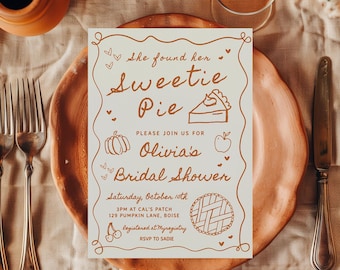 She found her
Sweetie
Pie
PLEASE JOIN US FOR
Olivia's
Bridal Shower
Saturday, October 10th
3PM AT CAL'S PATCH
129 PUMPKIN LANE, BOISE
Registered at Myregistry
RSVP TO SADIE